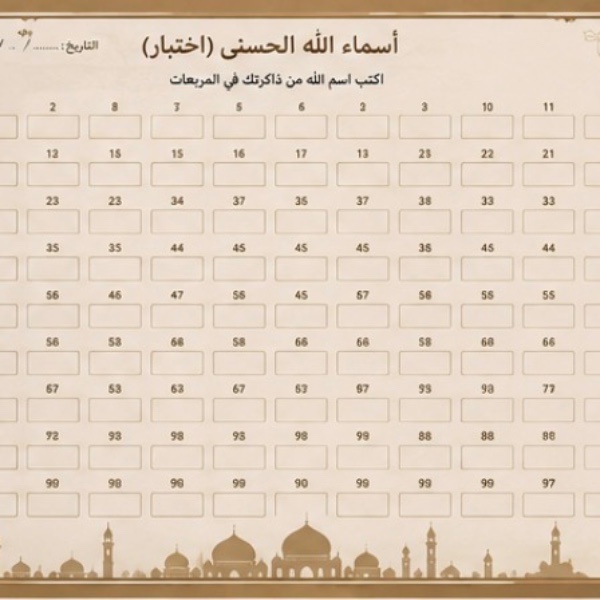 أسماء الله الحسنى (اختبار)
التاريخ:
اكتب اسم الله من ذاكرتك في المربعات
2 8 7 5 6 3 3 10 11
13 15 15 16 17 13 25 22 21
23 23 34 37 36 37 38 33 33
35 35 44 45 45 45 36 45 44
56 46 47 56 45 57 56 55 55
56 53 66 58 66 66 58 68 66
67 53 63 67 63 97 93 77
72 93 98 93 98 99 88 88 88
99 98 98 99 90 99 99 99 97